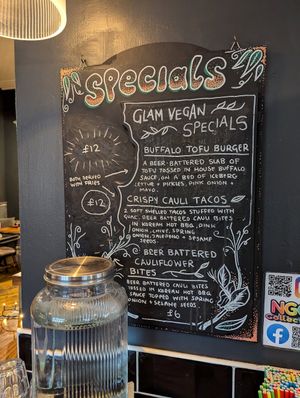 SPECIALS
GLAM VEGAN
SPECIALS
BUFFALO TOFU BURGER
A BEER-BATTERED SLAB OF
TOFU TOSSED IN HOUSE BUFFALO
SAUCE, ON A BED OF ICEBERG
LETTUCE + PICKLES, PINK ONION +
MAYO.
£12
BOTH SERVED
WITH FRIES
£12
CRISPY CAULI TACOS
2 SOFT SHELLED TACOS STUFFED WITH
GUAC, BEER BATTERED CAULI BITES
IN KOREAN HOT BBQ, PINK
ONION, LIME, SPRING
ONION, JALAPENO + SESAME
SEEDS.
BEER BATTERED
CAULIFLOWER
BITES
BEER BATTERED CAULI BITES
TOSSED IN KOREAN HOT BBQ
SAUCE TOPPED WITH SPRING
ONION + SESAME SEEDS
£6